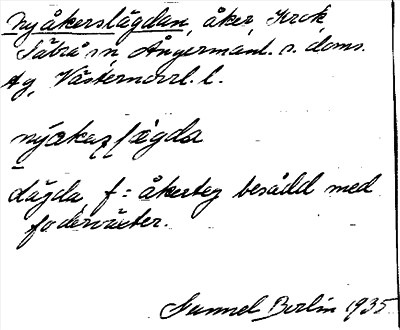 Nyåkerslägdan, åker, Krok,
Säbrå sn, Ångermanl. s. doms.
Ag, Västernorrl. l.
lägda, f: åkerteg besådd med
foderväxter.
Gunnel Berlin 1935